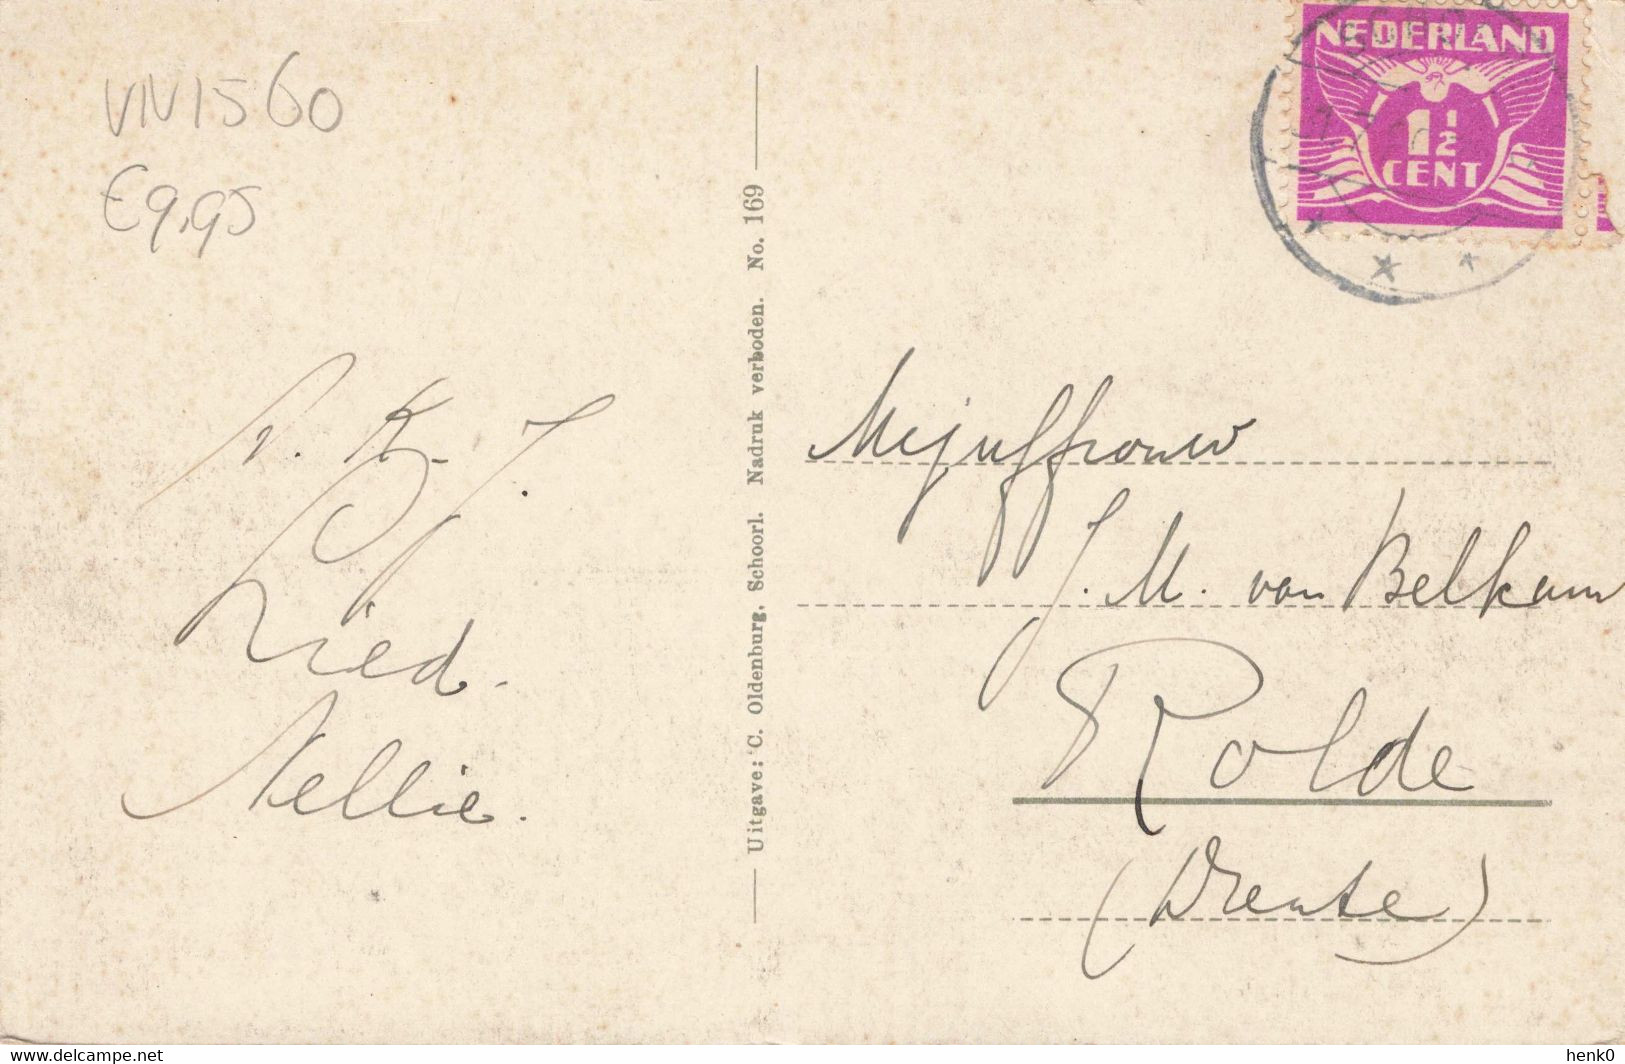 VIV1560
€9,95
Lied.
Nellie.
Uitgave: C. Oldenburg, Schoorl. Nadruk verboden. No. 169
NEDERLAND
1½
CENT
Mejuffrouw
J. M. van Belkum
Rolde
(Drente)
www.delcampe.net
henk0